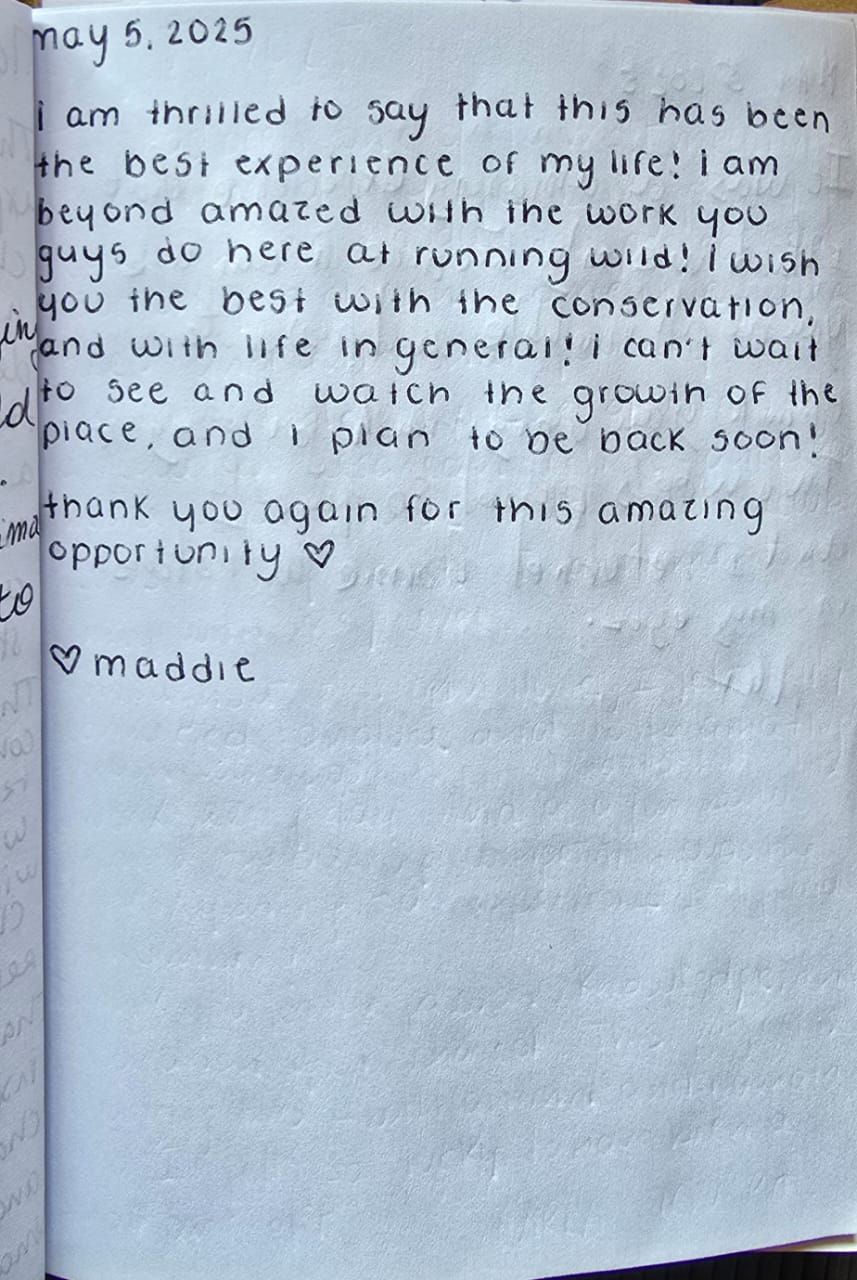 may 5, 2025
i am thrilled to say that this has been
the best experience of my life! i am
beyond amazed with the work you
guys do here at running wild! i wish
you the best with the conservation,
and with life in general! i can't wait
to see and watch the growth of the
place, and i plan to be back soon!
thank you again for this amazing
opportunity ♡
♡ maddie